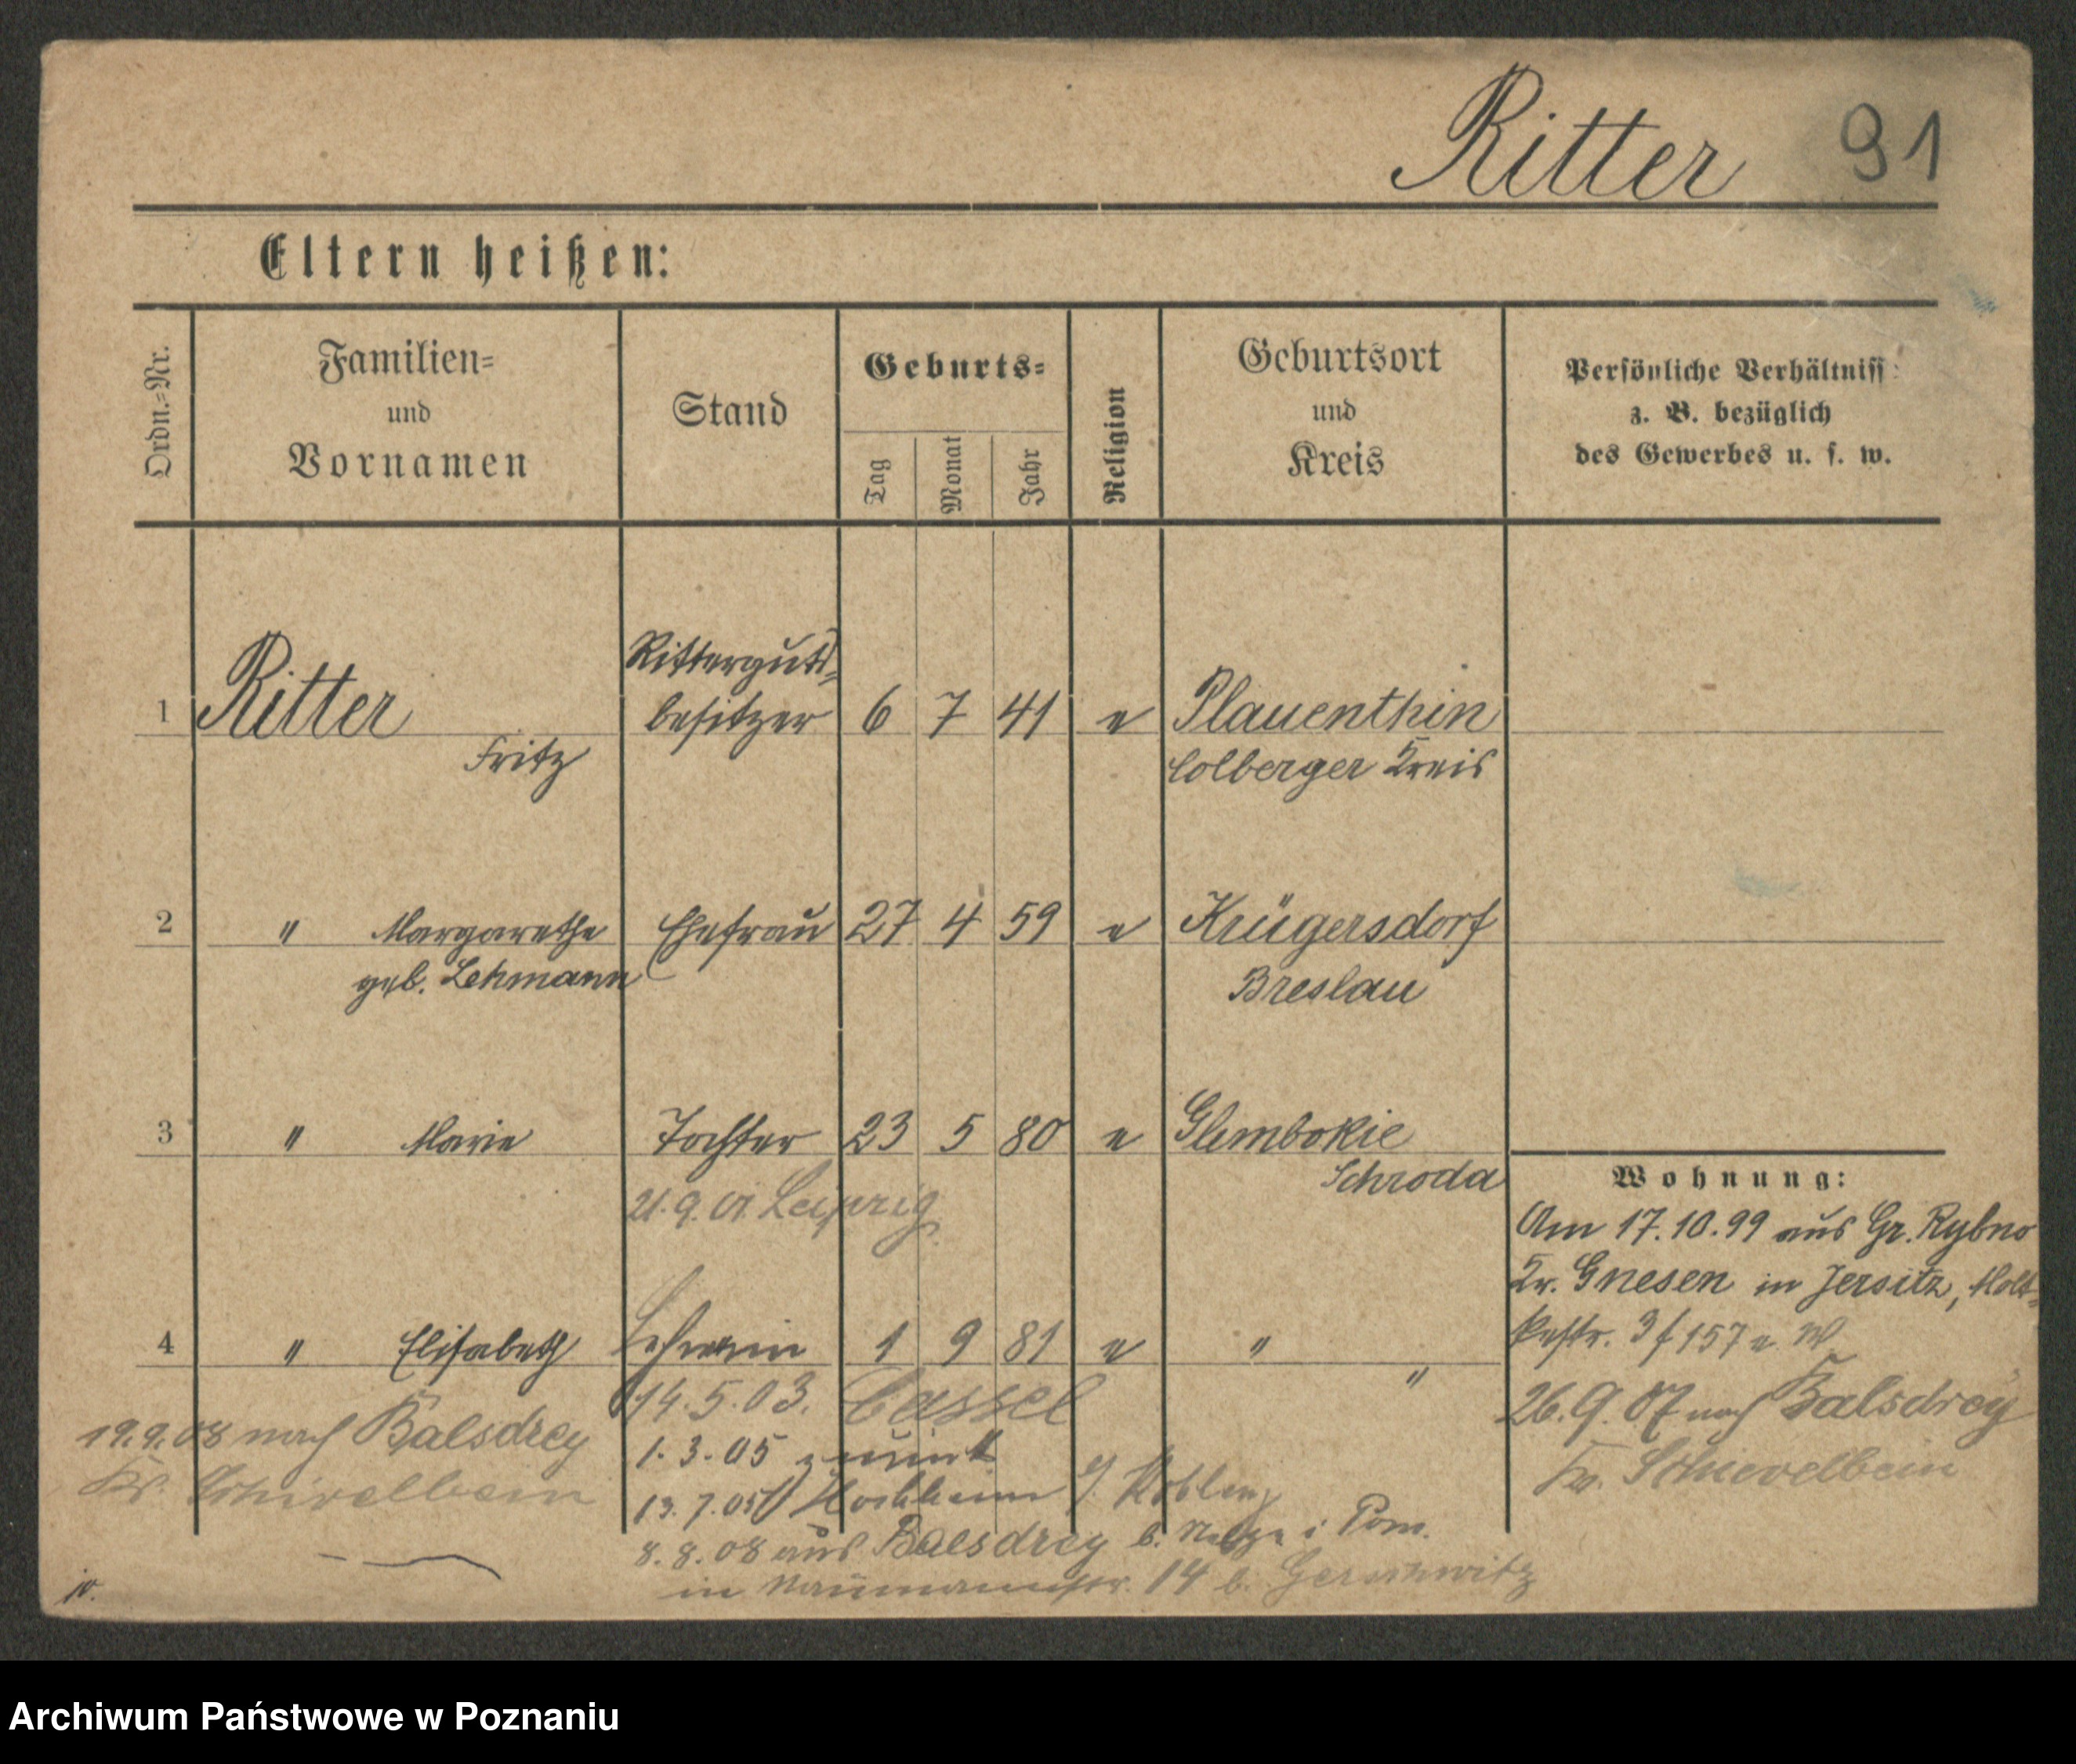 Ritter 91
Eltern heißen:
Ordn.-Nr.
Familien-
und
Vornamen
Stand
Geburts-
Tag
Monat
Jahr
Religion
Geburtsort
und
Kreis
Persönliche Verhältniss
z. B. bezüglich
des Gewerbes u. s. w.
Ritterguts-
1 Ritter besitzer 6 7 41 e Plauenthin
Fritz Colberger Kreis
2 " Margarethe Ehefrau 27 4 59 e Krügersdorf
geb. Lehmann Breslau
3 " Marie Tochter 23 5 80 e Glembokie
Schroda
21.9.01. Leipzig
Wohnung:
Am 17.10.99 aus Gr. Rybno
Kr. Gnesen in Jersitz, Molt-
kestr. 3 f 157 e. W.
4 " Elisabeth Lehrerin 1 9 81 e " "
14.5.03. Cassel
26.9.07 nach Balsdrey
Kr. Schievelbein
19.9.08 nach Balsdrey
Kr. Schivelbein
1.3.05 zurück
13.7.05 Hochheim b/ Koblenz
8.8.08 aus Balsdrey b. i Pom.
in Naumannstr. 14 b.
Archiwum Państwowe w Poznaniu